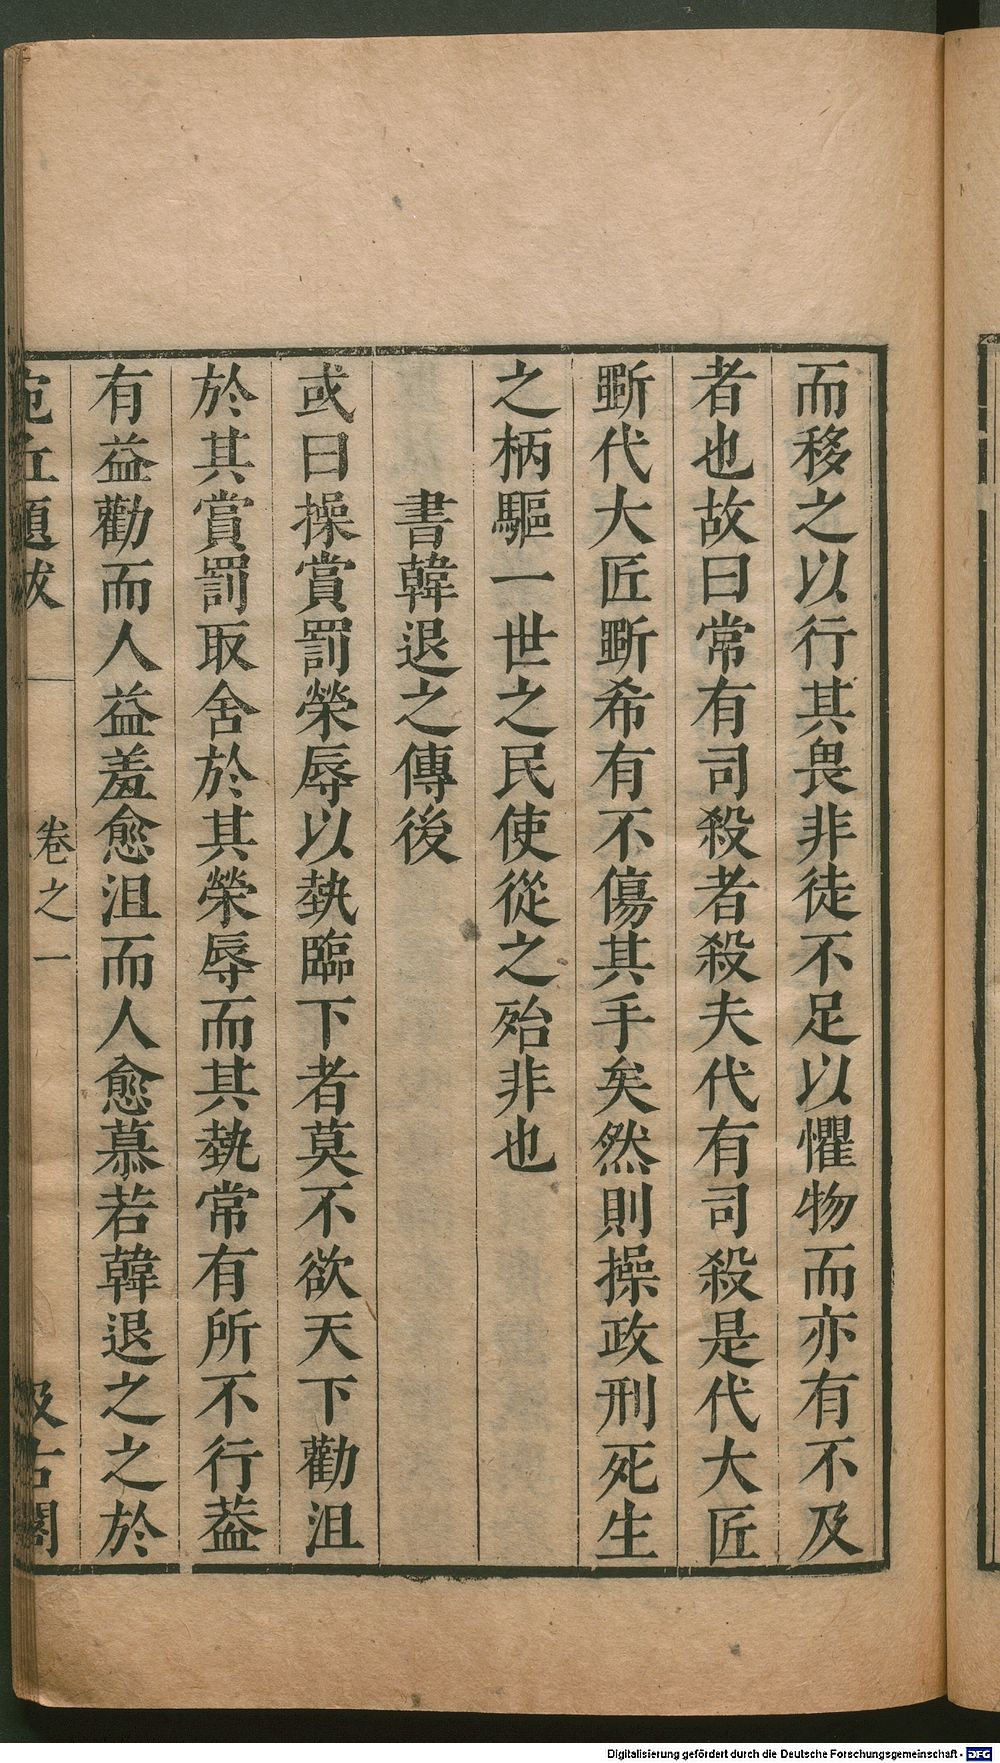 而移之以行其畏非徒不足以懼物而亦有不及
者也故曰常有司殺者殺夫代有司殺是代大匠
斲代大匠斲希有不傷其手矣然則操政刑死生
之柄驅一世之民使從之殆非也
書韓退之傳後
或曰操賞罰榮辱以埶臨下者莫不欲天下勸沮
於其賞罰取舍於其榮辱而其埶常有所不行葢
有益勸而人益羞愈沮而人愈慕若韓退之之於
宛丘題跋 卷之一 汲古閣
Digitalisierung gefördert durch die Deutsche Forschungsgemeinschaft - DFG